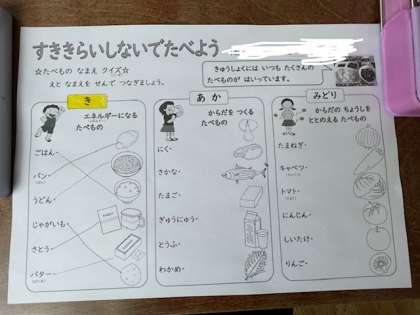 すききらいしないでたべよう
☆たべもの なまえ クイズ☆
えと なまえを せんで つなぎましょう。
きゅうしょくには いつも たくさんの
たべものが はいっています。
き
エネルギーになる
たべもの
ごはん
パン
うどん
じゃがいも
さとう
バター
あか
からだを つくる
たべもの
にく
さかな
たまご
ぎゅうにゅう
とうふ
わかめ
みどり
からだの ちょうしを
ととのえる たべもの
たまねぎ
キャベツ
トマト
にんじん
しいたけ
りんご